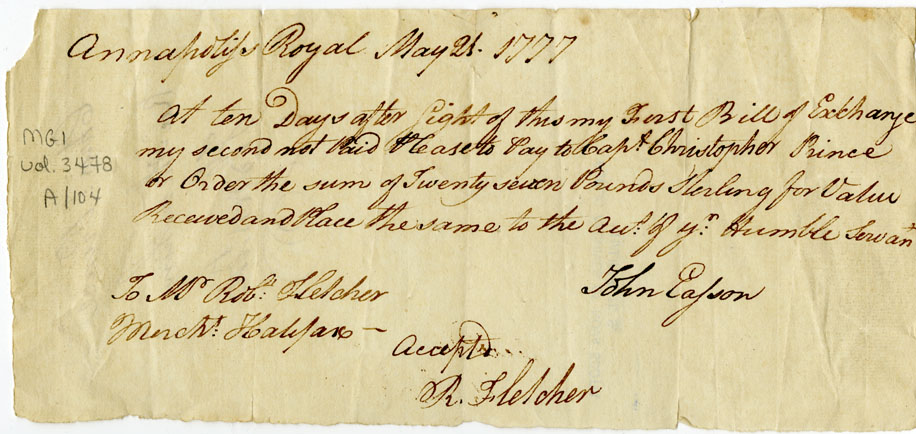 Annapolis Royal May 21. 1777
At ten Days after Sight of this my First Bill of Exchange
my second not Paid Please to Pay to Capt. Christopher Prince
or Order the sum of Twenty seven Pounds Sterling for Value
Received and Place the same to the Acct. of yr. Humble Servant
John Easson
To Mr Robt. Fletcher
Mercht. Halifax —
Accepted
R. Fletcher
MG1
vol. 3478
A/104